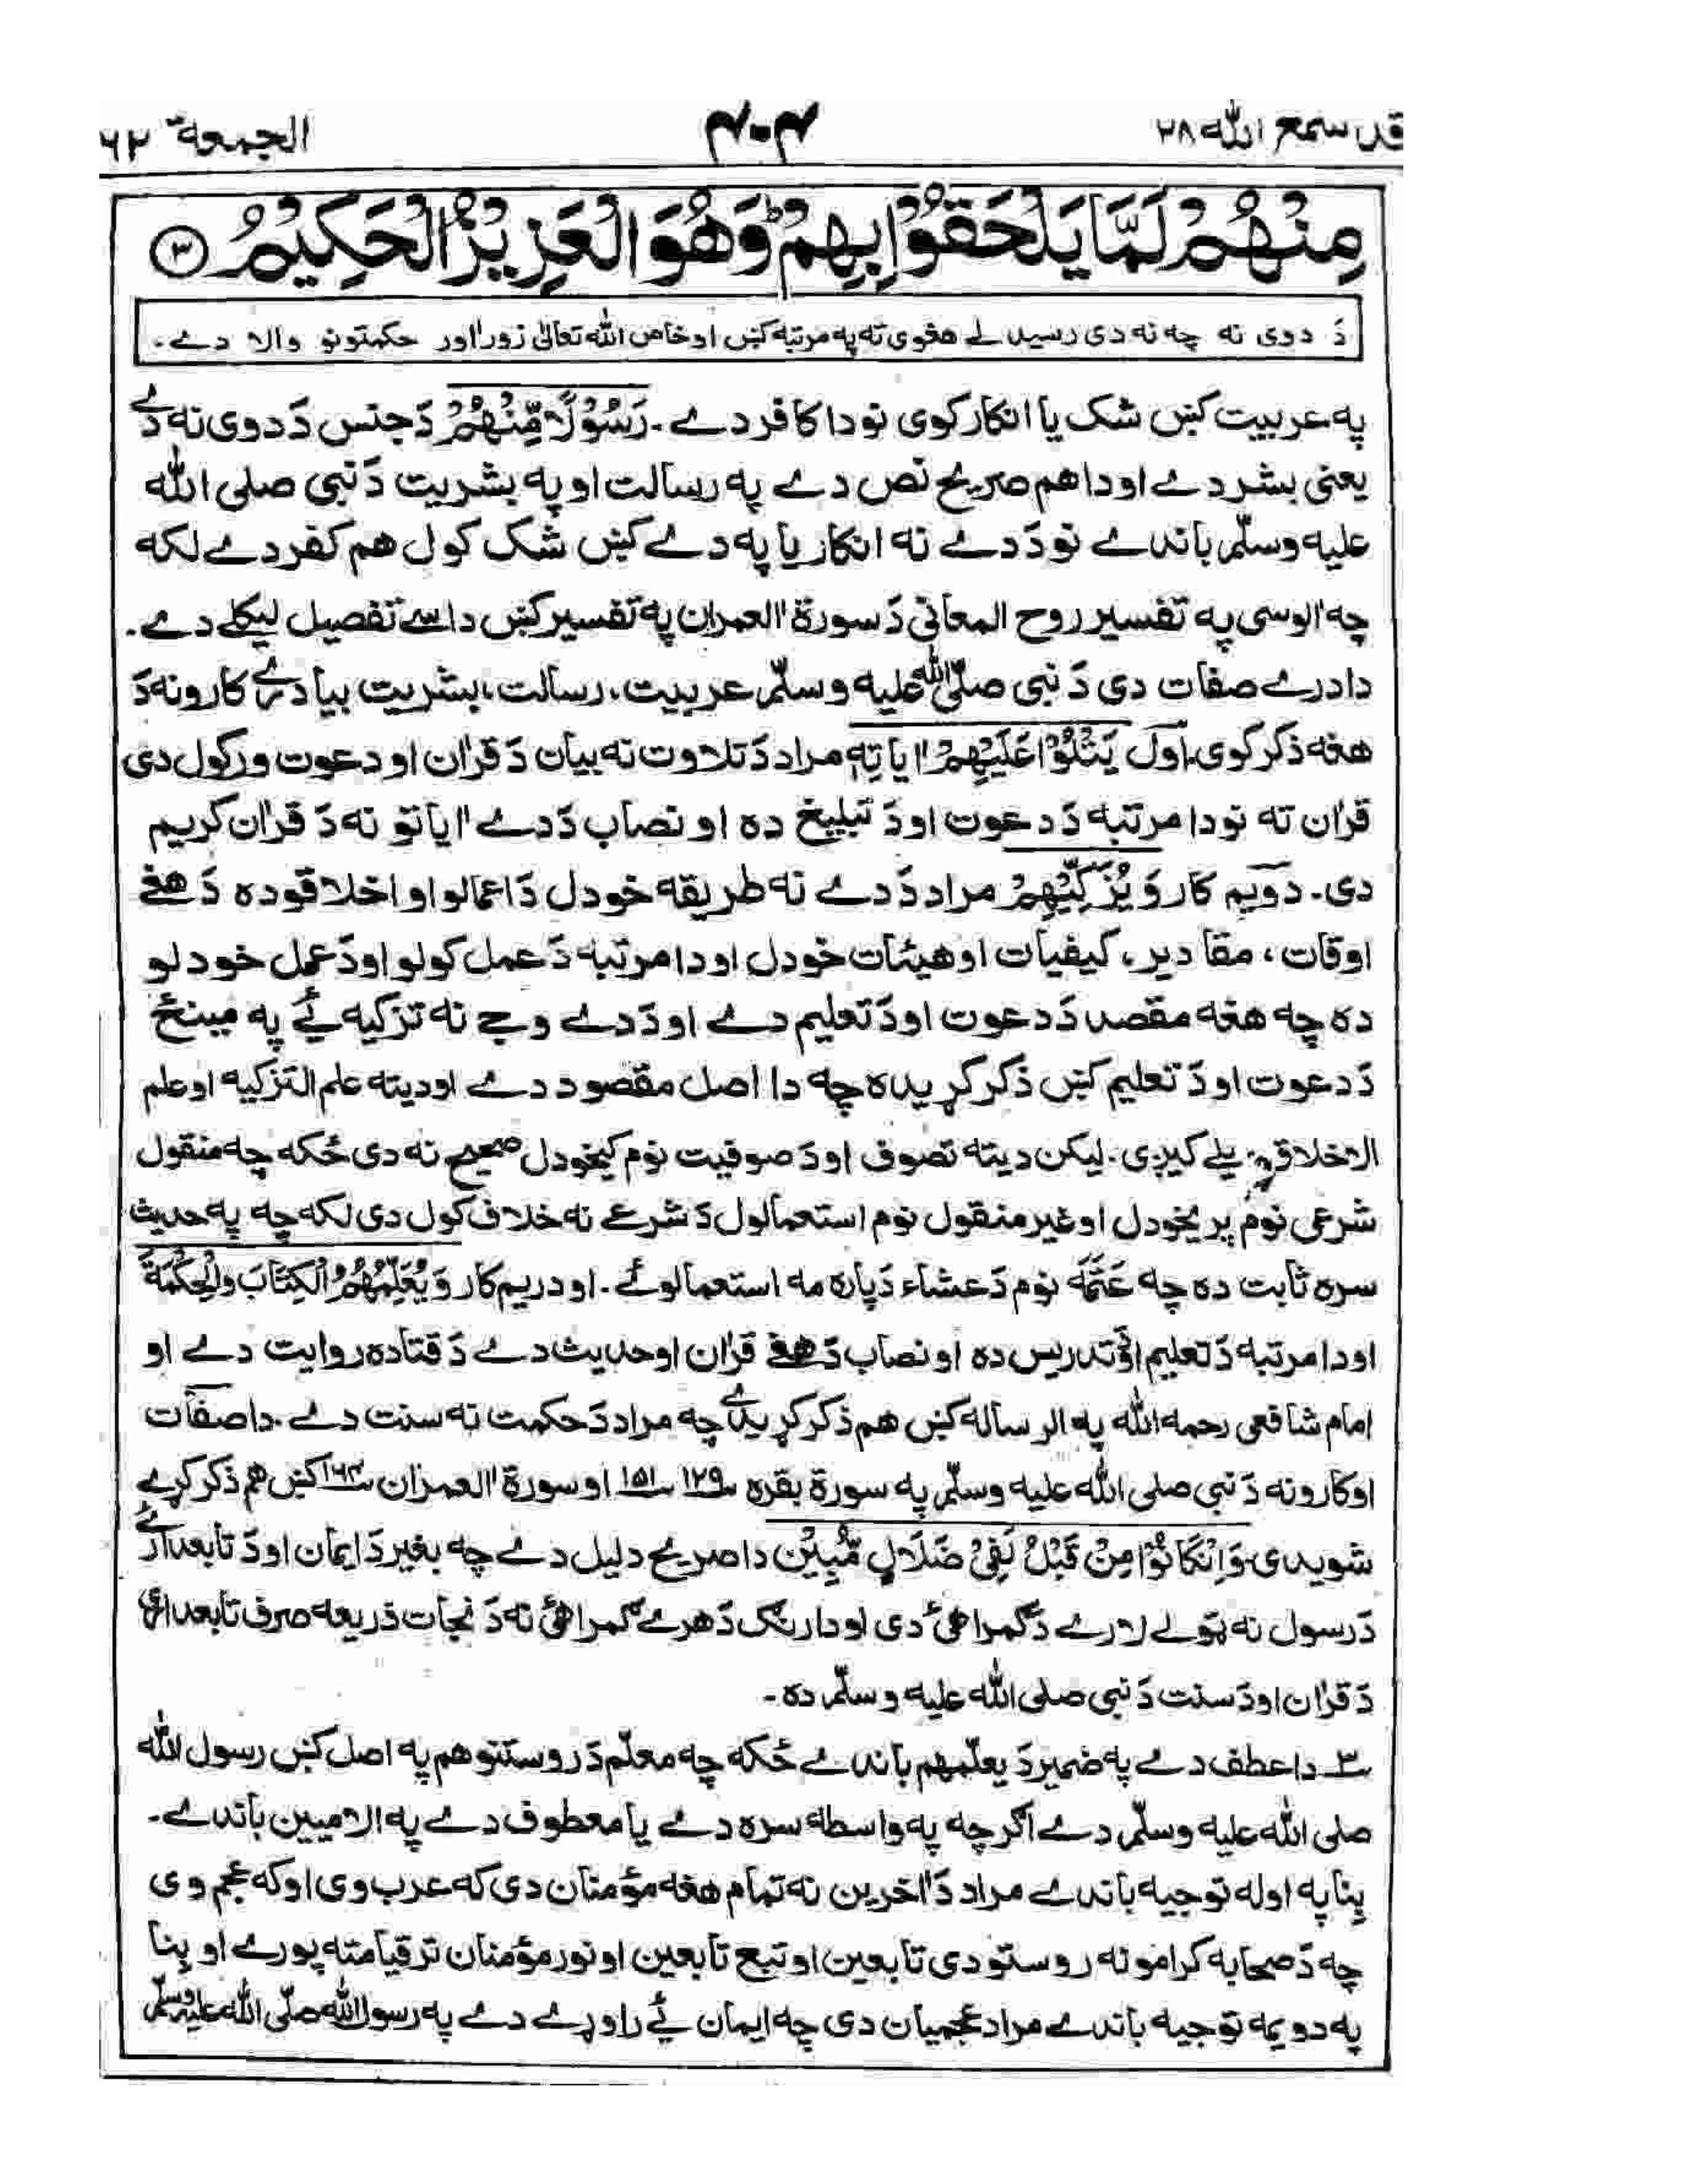 قد سمع الله ۲۸
۴۰۴
الجمعة ۶۲
مِنْهُمْ لَمَّا يَلْحَقُوْا بِهِمْ ؕ وَهُوَ الْعَزِيْزُ الْحَكِيْمُ ۳
دَ دوی نه چه نه دی رسیدلے هغوی ته په مرتبه کښ او خاص الله تعالیٰ زور اور حکمتونو والا دے۔
په عربیت کښ شک یا انکار کوی نو دا کافر دے۔ رَسُوْلًا مِّنْهُمْ دَ جنس دَ دوی نه دے
یعنی بشر دے او دا هم صریح نص دے په رسالت او په بشریت دَ نبی صلی الله
علیه وسلّم باندے نو دَ دے نه انکار یا په دے کښ شک کول هم کفر دے لکه
چه اٰلوسی په تفسیر روح المعانی دَ سورة اٰل عمران په تفسیر کښ داسے تفصیل لیکلے دے۔
دا درے صفات دی دَ نبی صلّی الله علیه وسلّم عربیت، رسالت، بشریت بیا درے کارونه دَ
هغه ذکر کوی اول يَتْلُوْا عَلَيْهِمْ اٰيَاتِهٖ مراد دَ تلاوت نه بیان دَ قراٰن او دعوت ورکول دی
قراٰن ته نو دا مرتبه دَ دعوت او دَ تبلیغ ده او نصاب دَ دے اٰیاتونه دَ قراٰن کریم
دی۔ دویم کار وَيُزَكِّيْهِمْ مراد دَ دے نه طریقه خودل دَ اعمالو او اخلاقو ده دَ هغے
اوقات، مقادیر، کیفیات او هیئات خودل او دا مرتبه دَ عمل کولو او دَ عمل خودلو
ده چه هغه مقصد دَ دعوت او دَ تعلیم دے او دَ دے وجے نه تزکیه ئے په مینځ
دَ دعوت او دَ تعلیم کښ ذکر کړیده چه دا اصل مقصود دے او دیته علم التزکیه او علم
الاخلاق ویلے کیږی۔ لیکن دیته تصوف او دَ صوفیت نوم کیخودل صحیح نه دی ځکه چه منقول
شرعی نوم پریخودل او غیر منقول نوم استعمالول دَ شرعے نه خلاف کول دی لکه چه په حدیث
سره ثابت ده چه عَتَمَه نوم دَ عشاء دَ پاره مه استعمالوئے۔ او دریم کار وَيُعَلِّمُهُمُ الْكِتَابَ وَالْحِكْمَةَ
او دا مرتبه دَ تعلیم او دَ تدریس ده او نصاب دَ هغے قراٰن او حدیث دے دَ قتاده روایت دے او
امام شافعی رحمه الله په الرساله کښ هم ذکر کړیدی چه مراد دَ حکمت نه سنت دے۔ دا صفات
او کارونه دَ نبی صلی الله علیه وسلّم په سورة بقره ۱۲۹ ۱۵۱ او سورة اٰل عمران ۱۶۴ کښ هم ذکر کړے
شویدی۔ وَاِنْ كَانُوْا مِنْ قَبْلُ لَفِيْ ضَلَالٍ مُّبِيْنٍ دا صریح دلیل دے چه بغیر دَ ایمان او دَ تابعدارئ
دَ رسول نه ټولے لارے دَ گمراهئ دی او دارنگ دَ هرے گمراهئ نه دَ نجات ذریعه صرف تابعدارئ
دَ قراٰن او دَ سنت دَ نبی صلی الله علیه وسلّم ده۔
۳ دا عطف دے په ضمیر دَ یعلّمهم باندے ځکه چه معلّم دَ روستنو هم په اصل کښ رسول الله
صلی الله علیه وسلّم دے اگر چه په واسطه سره دے یا معطوف دے په الامیین باندے۔
بنا په اوله توجیه باندے مراد دَ اٰخرین نه تمام هغه مؤمنان دی که عرب وی او که عجم وی
چه دَ صحابه کرامو نه روستو دی تابعین او تبع تابعین او نور مؤمنان تر قیامته پورے او بنا
په دویمه توجیه باندے مراد عجمیان دی چه ایمان ئے راوړے دے په رسول الله صلّی الله علیه وسلّم